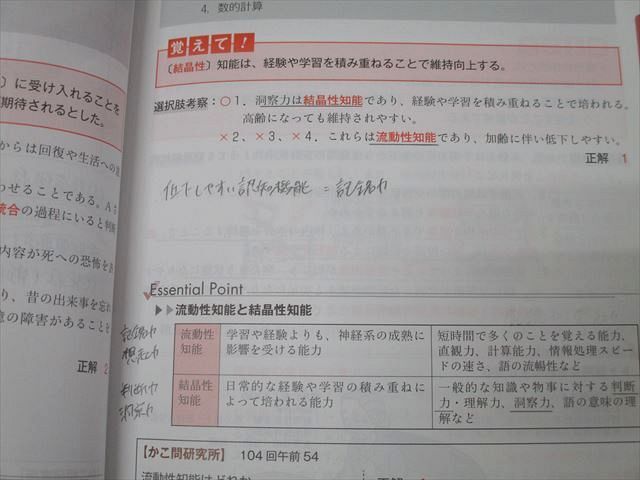 4. 数的計算
覚えて!
〔結晶性〕知能は、経験や学習を積み重ねることで維持向上する。
選択肢考察：○1．洞察力は結晶性知能であり、経験や学習を積み重ねることで培われる。
高齢になっても維持されやすい。
×2、×3、×4．これらは流動性知能であり、加齢に伴い低下しやすい。
正解 1
低下しやすい認知機能 = 記銘力
Essential Point
▶▶流動性知能と結晶性知能
流動性知能
学習や経験よりも、神経系の成熟に
影響を受ける能力
短時間で多くのことを覚える能力、
直観力、計算能力、情報処理スピー
ドの速さ、語の流暢性など
結晶性知能
日常的な経験や学習の積み重ねに
よって培われる能力
一般的な知識や物事に対する判断
力・理解力、洞察力、語の意味の理
解など
記銘力
想起力
判断力
洞察力
【かこ問研究所】 104回午前54
流動性知能はどれか
〕に受け入れることを
期待されるとした。
からは回復や生活への
わせることである。A
統合の過程にいると判断
内容が死への恐怖を
り、昔の出来事を忘れ
憶の障害があることを
正解 2